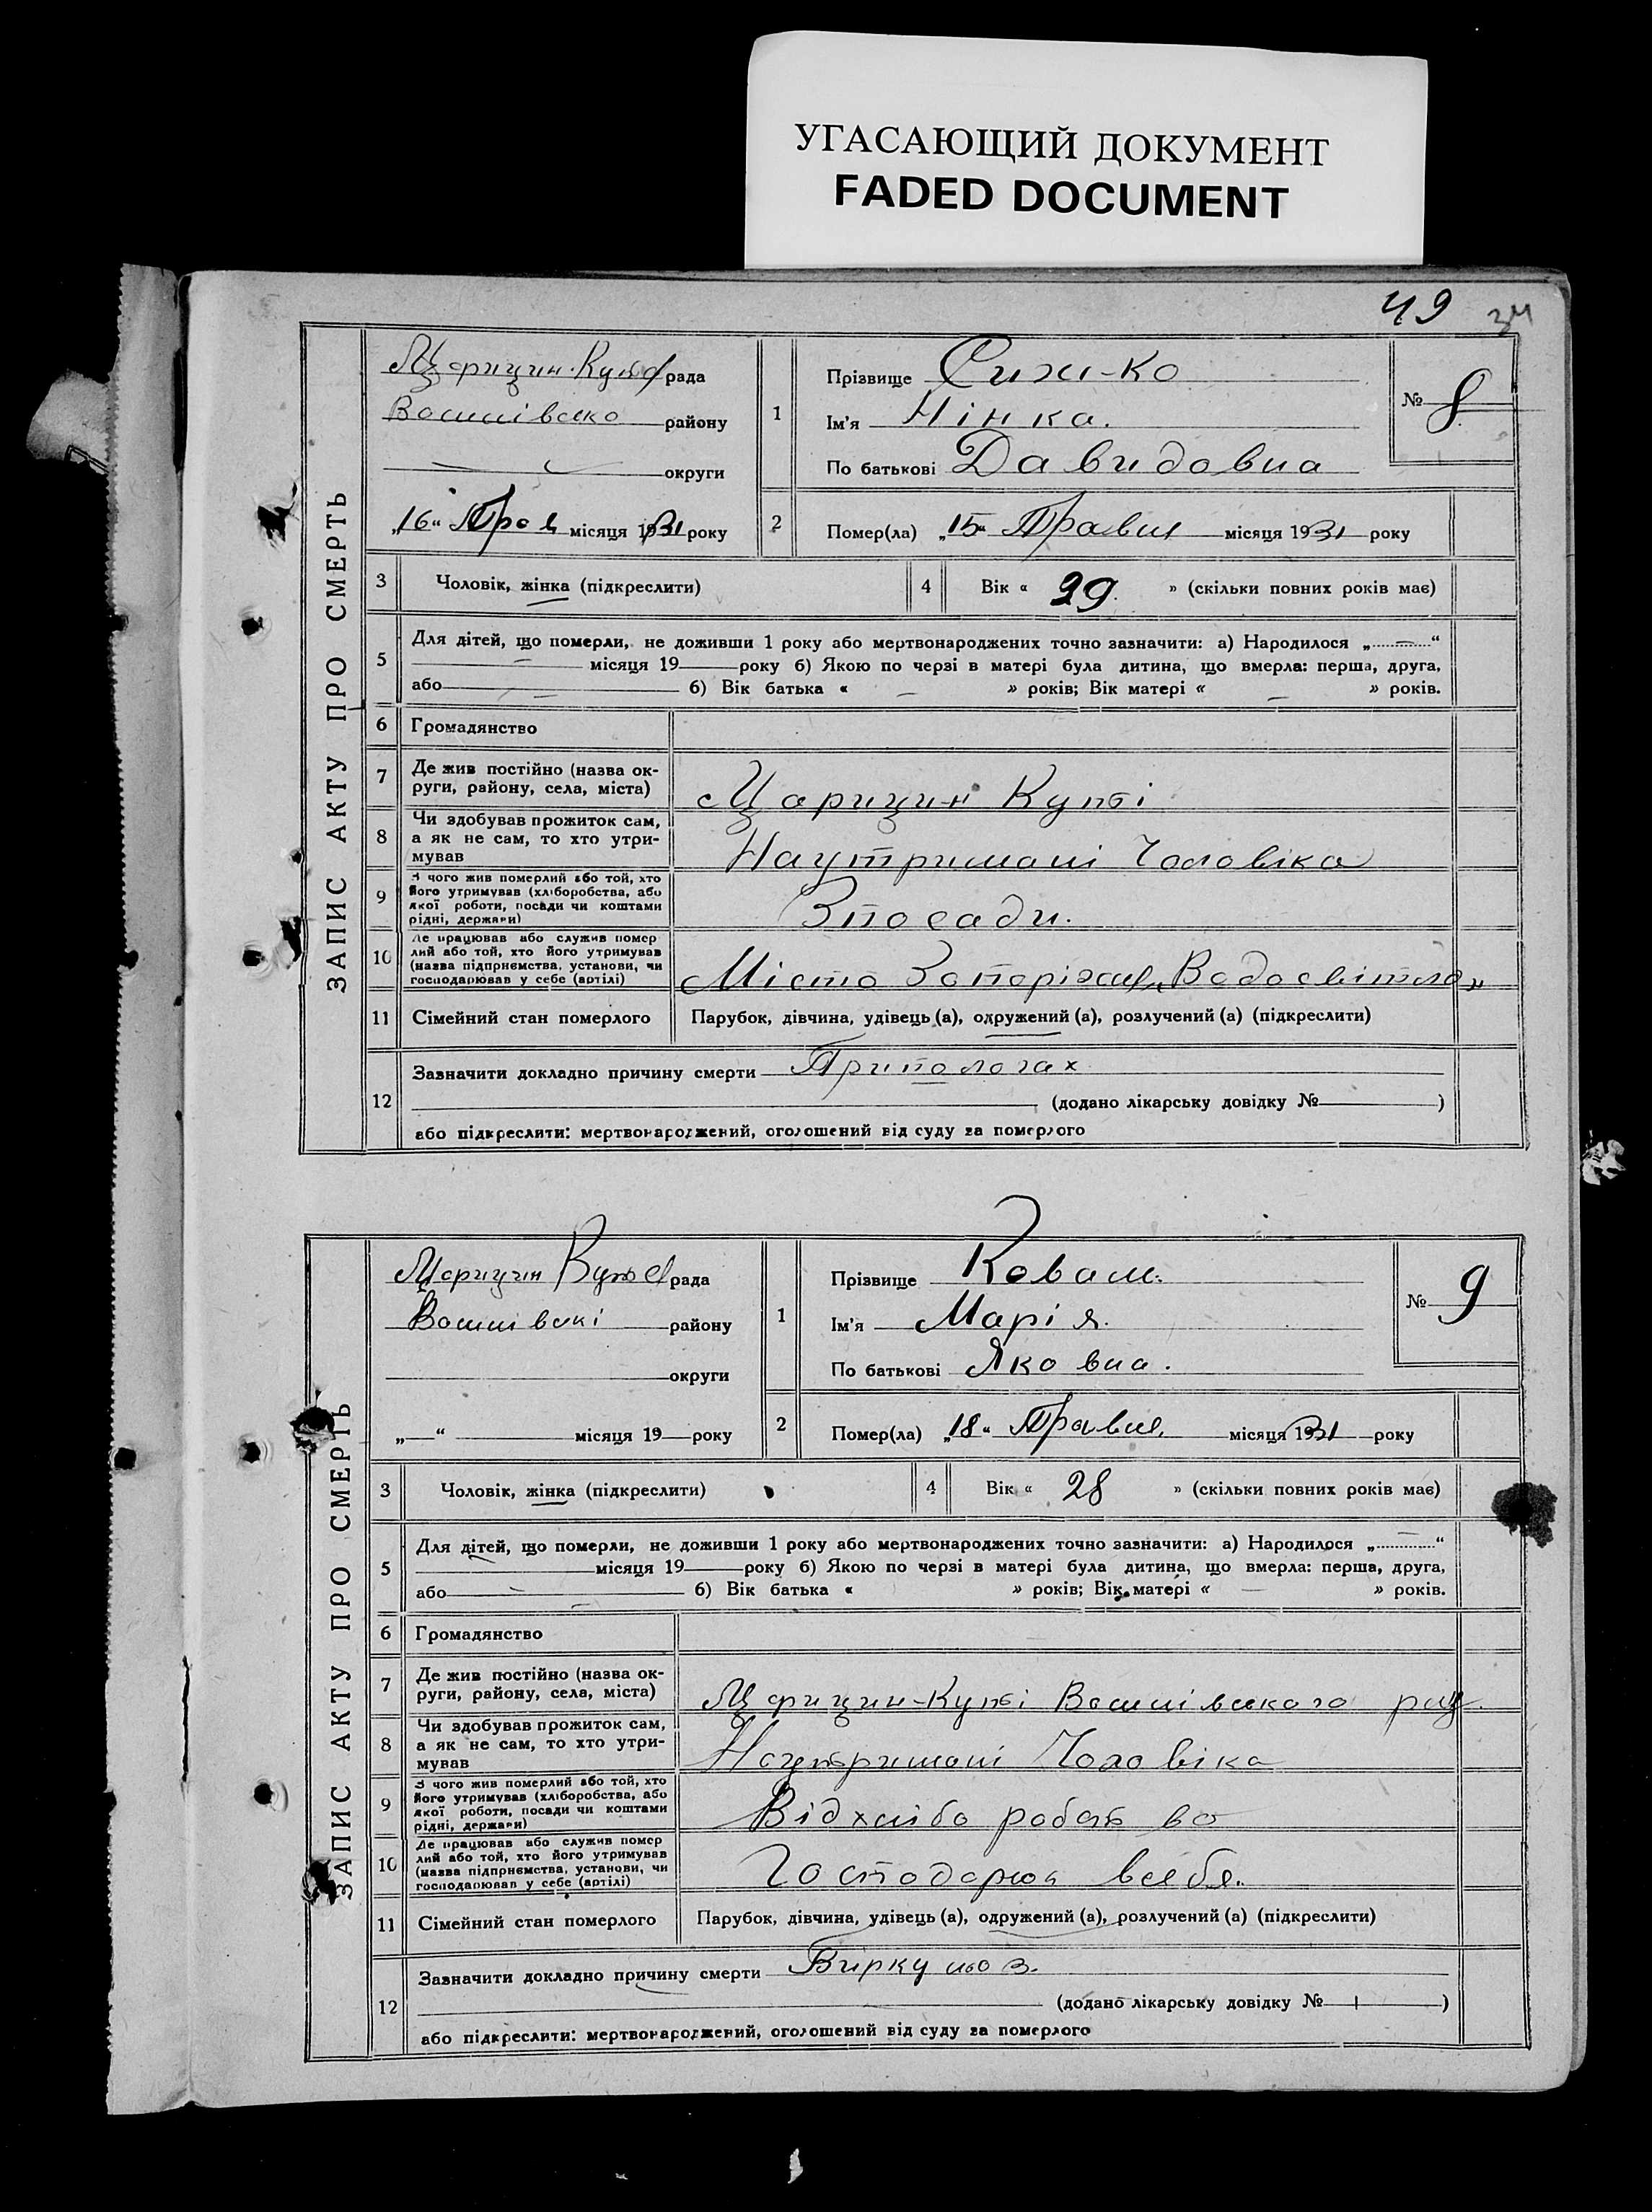 УГАСАЮЩИЙ ДОКУМЕНТ
FADED DOCUMENT
49 34
ЗАПИС АКТУ ПРО СМЕРТЬ
Царицин рада
району
округи
„16“ Трав місяця 1931 року
1
Прізвище
Ім'я Нінка.
По батькові Давидовна
№ 8
2
Помер(ла) „15“ Травня місяця 1931 року
3 Чоловік, жінка (підкреслити)
4 Вік « » (скільки повних років має)
5 Для дітей, що померли, не доживши 1 року або мертвонароджених точно зазначити: а) Народилося „ “
місяця 19 року б) Якою по черзі в матері була дитина, що вмерла: перша, друга,
або б) Вік батька « » років; Вік матері « » років.
6 Громадянство
7 Де жив постійно (назва ок-
руги, району, села, міста) Царицин Куті
8 Чи здобував прожиток сам,
а як не сам, то хто утри-
мував Наутримані Чоловіка
9 З чого жив померлий або той, хто
його утримував (хліборобства, або
якої роботи, посади чи коштами
рідні, держави) Зпосади.
10 Де працював або служив помер
лий або той, хто його утримував
(назва підприємства, установи, чи
господарював у себе (артілі) Місто „Водосвітло„
11 Сімейний стан померлого Парубок, дівчина, удівець (а), одружений (а), розлучений (а) (підкреслити)
12 Зазначити докладно причину смерти Припологах
(додано лікарську довідку № )
або підкреслити: мертвонароджений, оголошений від суду за померлого
ЗАПИС АКТУ ПРО СМЕРТЬ
Царицин рада
району
округи
„ “ місяця 19 року
1
Прізвище
Ім'я Марія.
По батькові Яковна.
№ 9
2
Помер(ла) „18“ Травня місяця 1931 року
3 Чоловік, жінка (підкреслити)
4 Вік « 28 » (скільки повних років має)
5 Для дітей, що померли, не доживши 1 року або мертвонароджених точно зазначити: а) Народилося „ “
місяця 19 року б) Якою по черзі в матері була дитина, що вмерла: перша, друга,
або б) Вік батька « » років; Вік матері « » років.
6 Громадянство
7 Де жив постійно (назва ок-
руги, району, села, міста) Царицин-Куті Василівського
8 Чи здобував прожиток сам,
а як не сам, то хто утри-
мував Наутримані Чоловіка
9 З чого жив померлий або той, хто
його утримував (хліборобства, або
якої роботи, посади чи коштами
рідні, держави) Відхлібо робств во
10 Де працював або служив помер
лий або той, хто його утримував
(назва підприємства, установи, чи
господарював у себе (артілі) всебя.
11 Сімейний стан померлого Парубок, дівчина, удівець (а), одружений (а), розлучений (а) (підкреслити)
12 Зазначити докладно причину смерти
(додано лікарську довідку № )
або підкреслити: мертвонароджений, оголошений від суду за померлого